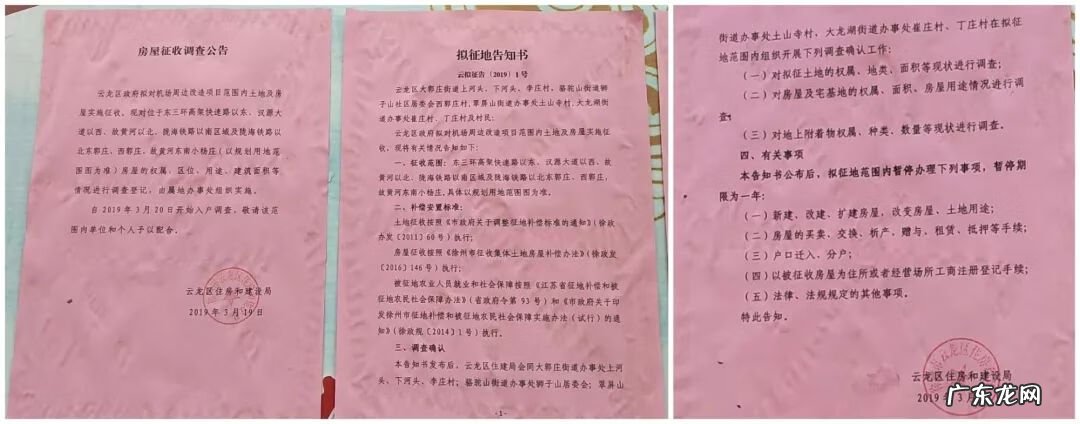 房屋征收调查公告
云龙区政府拟对机场周边改造项目范围内土地及房
屋实施征收。现对位于东三环高架快速路以东、汉源大
道以西、故黄河以北、陇海铁路以南区域及陇海铁路以
北东郭庄、西郭庄，故黄河东南小杨庄（以规划用地范
围图为准）房屋的权属、区位、用途、建筑面积等
情况进行调查登记，由属地办事处组织实施。
自2019年3月20日开始入户调查，敬请该范
围内单位和个人予以配合。
云龙区住房和建设局
2019年3月19日
拟征地告知书
云拟征告〔2019〕1号
云龙区大郭庄街道上河头、下河头、李庄村，骆驼山街道狮
子山社区居委会西郭庄村，翠屏山街道办事处土山寺村、大龙湖街
道办事处崔庄村、丁庄村及村民：
云龙区政府拟对机场周边改造项目范围内土地及房屋实施征
收。现将有关情况告知如下：
一、征收范围：东三环高架快速路以东、汉源大道以西、故
黄河以北、陇海铁路以南区域及陇海铁路以北东郭庄、西郭庄，
故黄河东南小杨庄。具体以规划用地范围图为准。
二、补偿安置标准：
土地征收按照《市政府关于调整征地补偿标准的通知》（徐政
办发〔2011〕60号）执行；
房屋征收按照《徐州市征收集体土地房屋补偿办法》（徐政发
〔2016〕146号）执行；
被征地农业人员就业和社会保障按照《江苏省征地补偿和被
征地农民社会保障办法》（省政府令第93号）和《市政府关于印
发徐州市征地补偿和被征地农民社会保障实施办法（试行）的通
知》（徐政规〔2014〕1号）执行。
三、调查确认
本告知书发布后，云龙区住建局会同大郭庄街道办事处上河
头、下河头、李庄村；骆驼山街道办事处狮子山居委会；翠屏山
- 1 -
街道办事处土山寺村、大龙湖街道办事处崔庄村、丁庄村在拟征
地范围内组织开展下列调查确认工作：
（一）对拟征土地的权属、地类、面积等现状进行调查；
（二）对房屋及宅基地的权属、面积、房屋用途情况进行调
查；
（三）对地上附着物权属、种类、数量等现状进行调查。
四、有关事项
本告知书公布后，拟征地范围内暂停办理下列事项，暂停期
限为一年：
（一）新建、改建、扩建房屋，改变房屋、土地用途；
（二）房屋的买卖、交换、析产、赠与、租赁、抵押等手续；
（三）户口迁入、分户；
（四）以被征收房屋为住所或者经营场所工商注册登记手续；
（五）法律、法规规定的其他事项。
特此告知。
云龙区住房和建设局
2019年3月
广东龙网